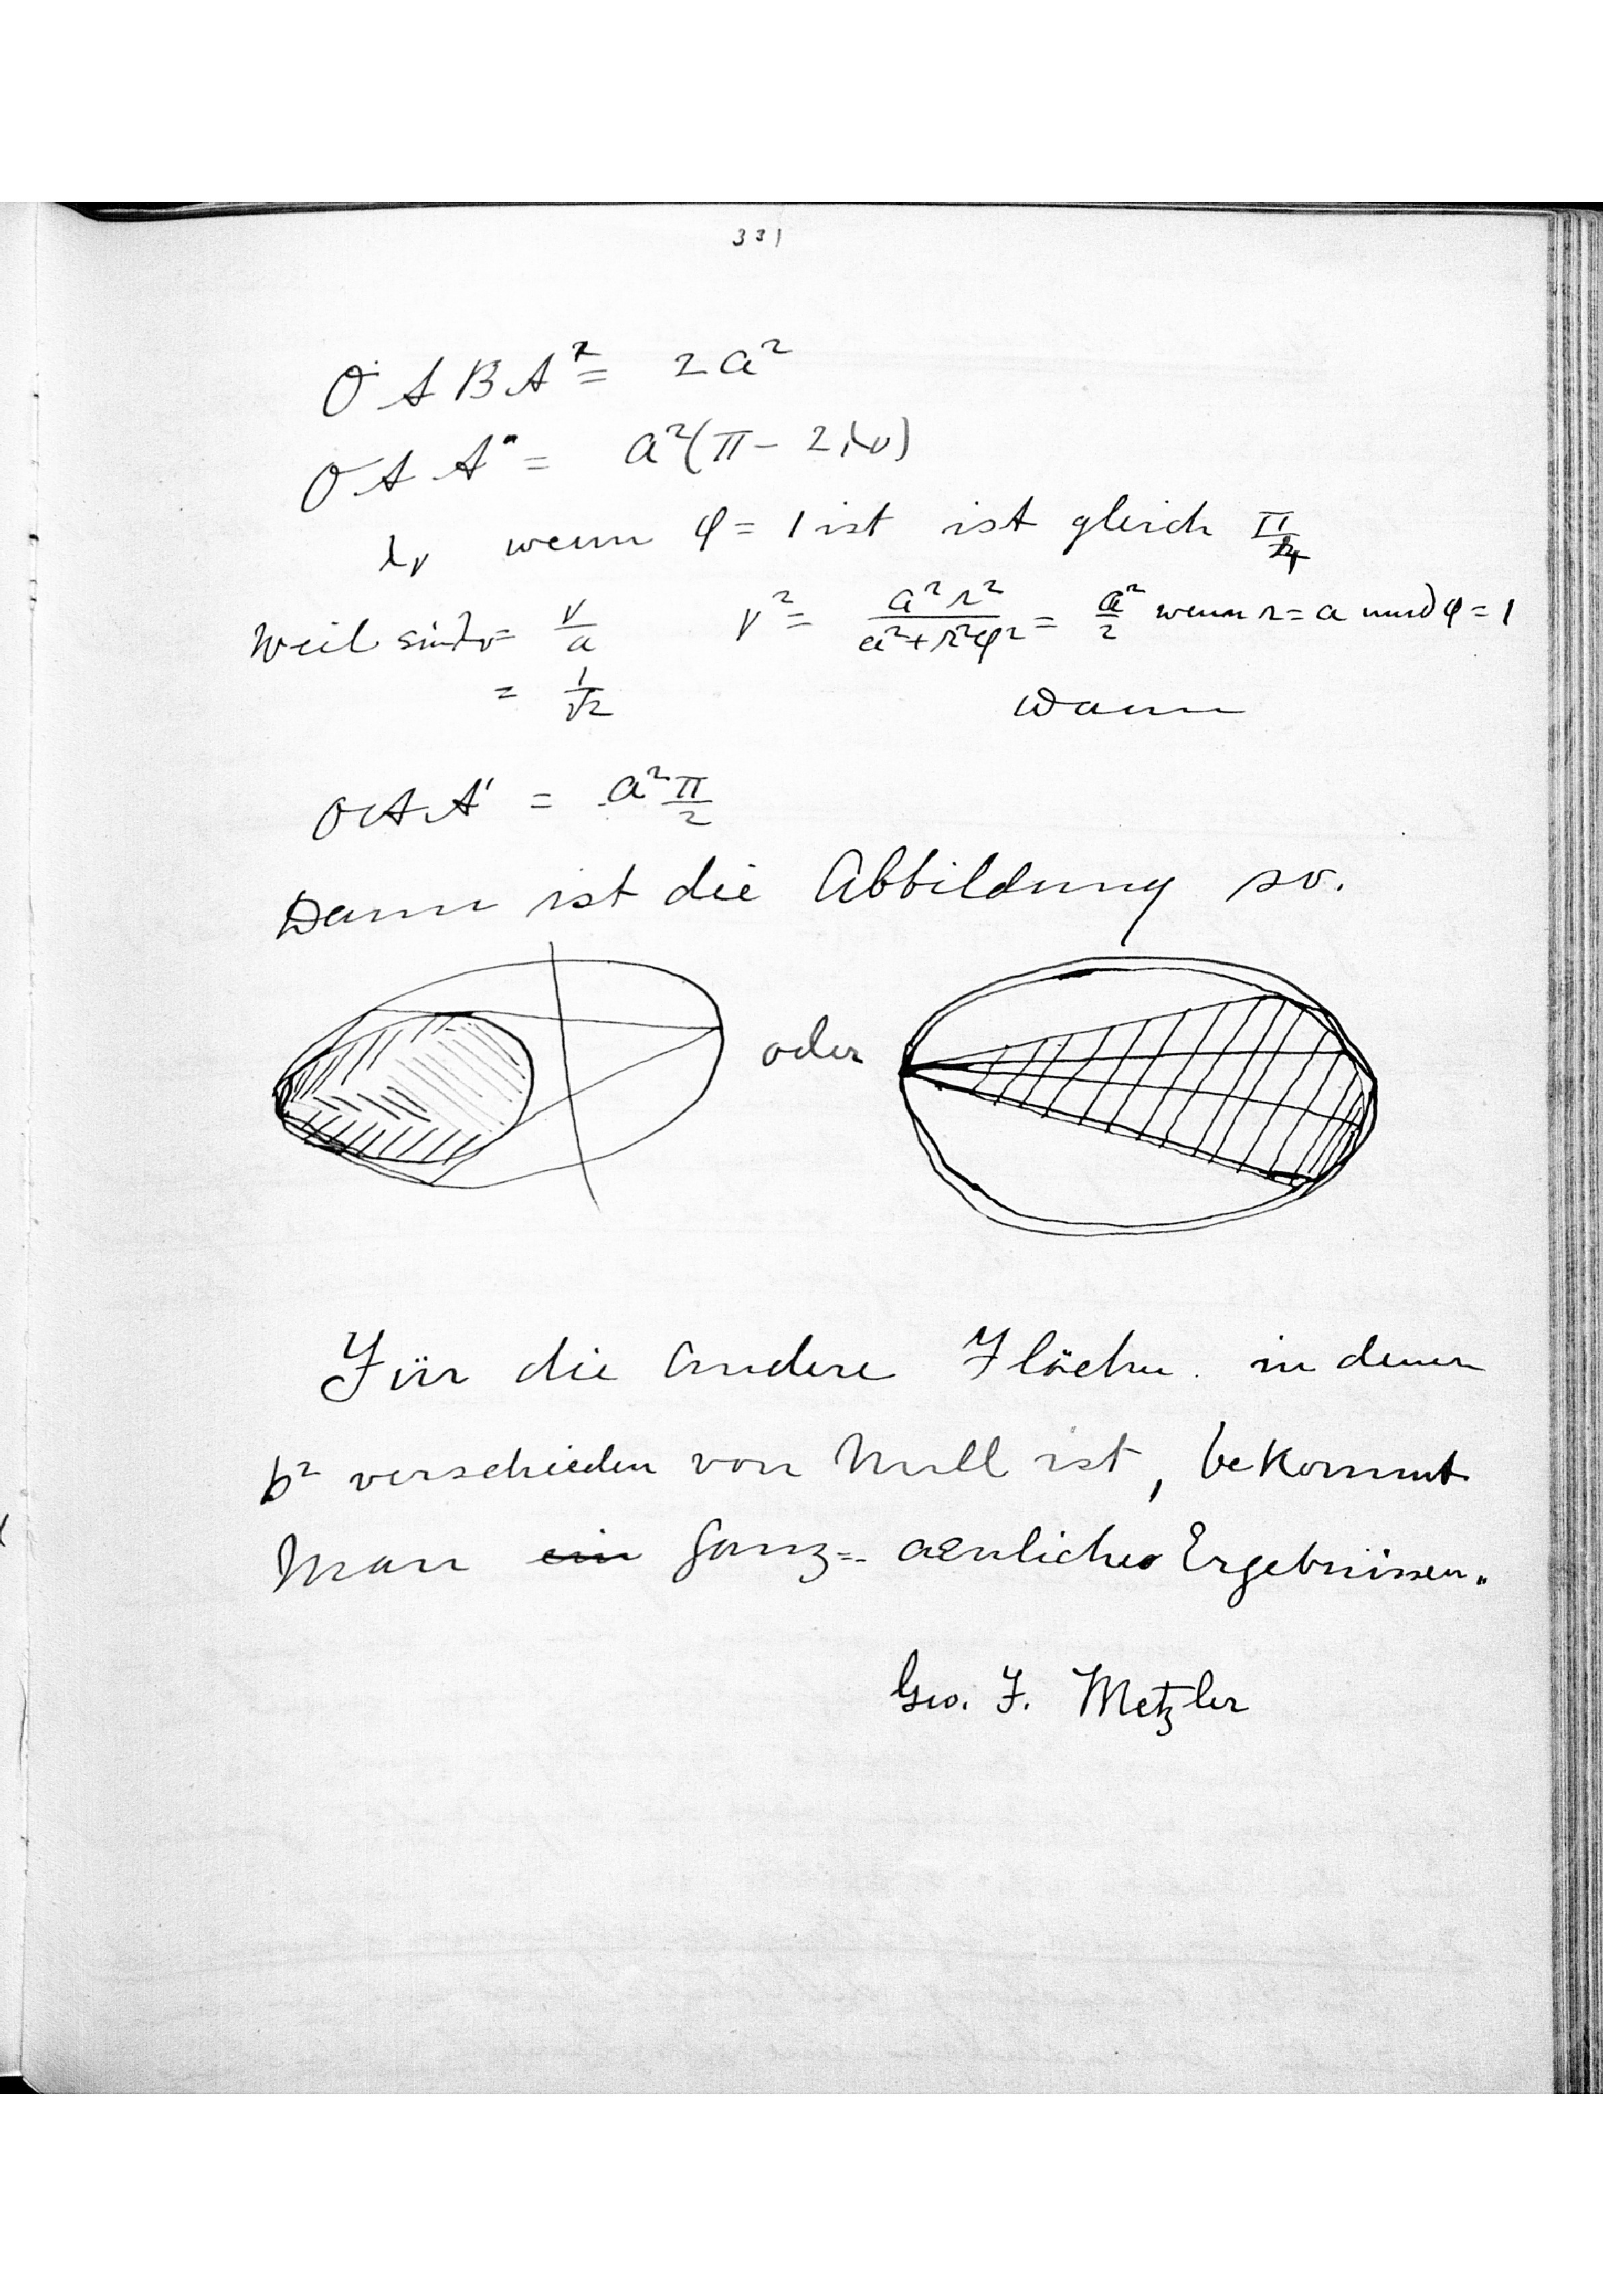 331
O A B A' = 2a²
O A A' = a²(π − 2λv)
λv wenn φ = 1 ist ist gleich π/4
Weil sin λv = v/a v² = a²r²/(a²+r²φ²) = a²/2 wenn r = a und φ = 1
= 1/√2 wann
O A A' = a² π/2
Dann ist die Abbildung so.
oder
Für die andere Fläche in denen
b² verschieden von Null ist, bekommt
Man ein Ganz = aenliches Ergebnissen.
Geo. F. Metzler